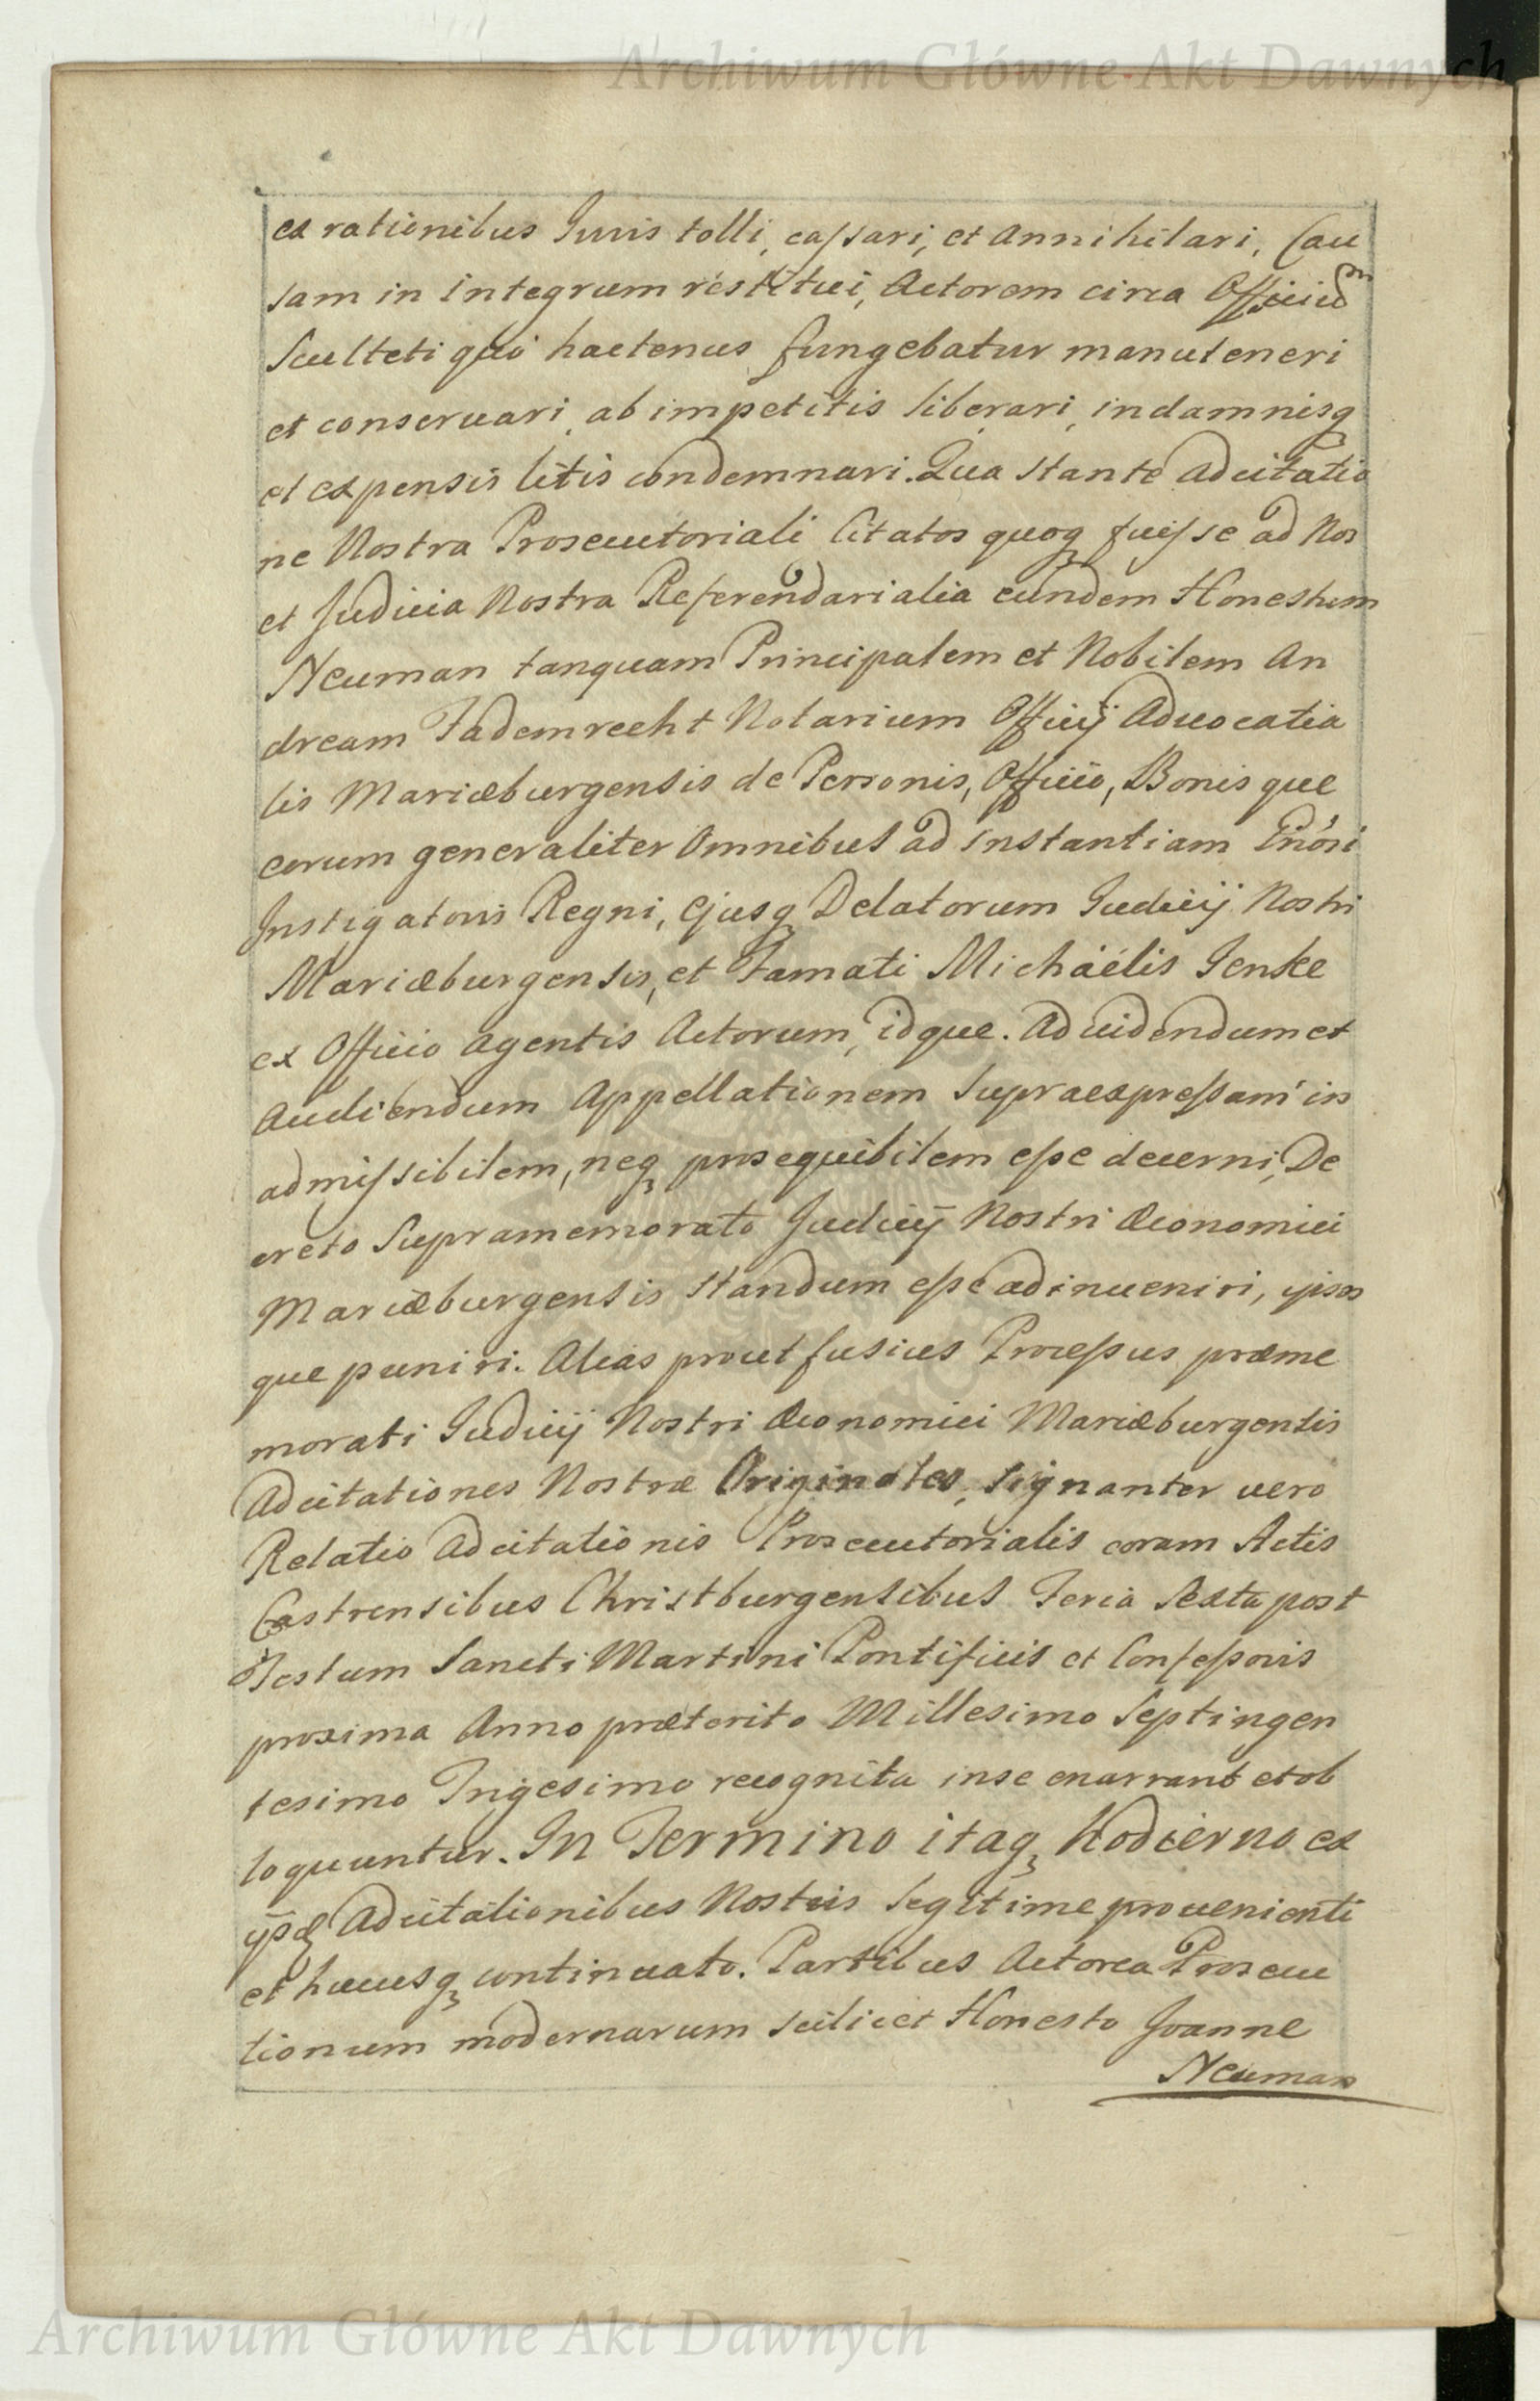 Archiwum Główne Akt Dawnych
ex rationibus Juris tolli, cassari, et Annihilari, Cau
sam in integrum restitui, Actorem circa Officiũ
Sculteti quô hactenus fungebatur manuteneri
et conseruari, ab impetitis liberari, indamnisq
et expensis litis condemnari. Qua stante Adcitatio
ne Nostra Prosecutoriali Citatos quoq fuisse ad Nos
et Judicia Nostra Referendarialia eundem Honestum
Neuman tanquam Principalem et Nobilem An
dream Fademrecht Notarium Officij Aduocatia
lis Mariæburgensis de Personis, Officio, Bonis que
eorum generaliter Omnibus ad instantiam
Instigatoris Regni, Ejusq Delatorum Judicij Nostri
Mariæburgensis, et Famati Michaëlis Jenke
ex Officio agentis Actorum, idque. Ad uidendum et
Audiendum Appellationem supraexpressam in
admissibilem, neq prosequibilem esse decerni, De
creto supramemorato Judicij Nostri Œconomici
Mariæburgensis standum esse adinueniri, ipsos
que puniri. Alias prout fusius Processus præme
morati Judicij Nostri Œconomici Mariæburgensis
Adcitationes Nostræ Originales, signanter uero
Relatio Adcitationis Prosecutorialis coram Actis
Castrensibus Christburgensibus Feria Sexta post
Festum Sancti Martini Pontificis et Confessoris
proxima Anno præterito Millesimo Septingen
tesimo Trigesimo recognita inse enarrant et ob
loquuntur. In Termino itaq Hodierno ex
Adcitationibus Nostris legitime prouenienti
et hucusq continuato. Partibus Actorea Prosecu
tionum modernarum scilicet Honesto Joanne
Neuman
Archiwum Główne Akt Dawnych